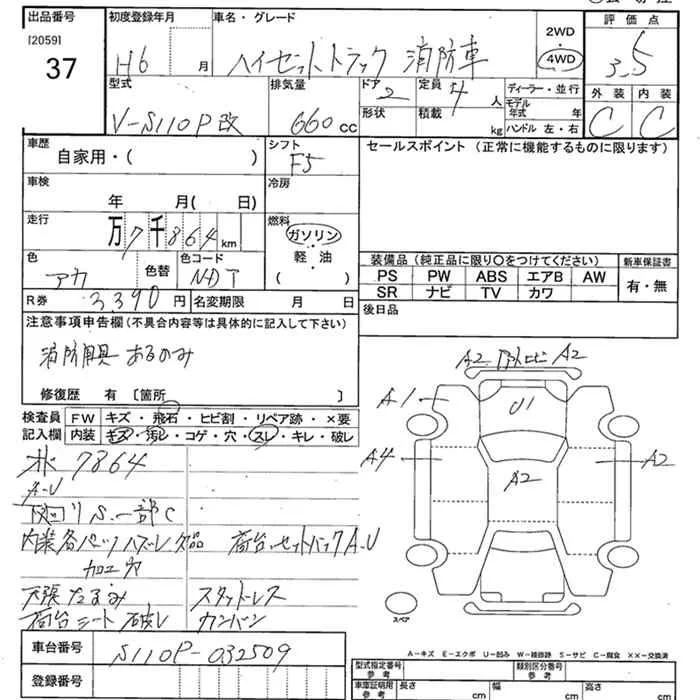 出品番号 初度登録年月 車名・グレード 評価点
[2059]
37
H6 月 ハイゼットトラック 消防車 2WD・4WD 3.5
型式 排気量 ドア 定員 ディーラー・並行 外装 内装
V-S110P改 660cc 2 4人
形状 積載 kg モデル年式 年 ハンドル 左・右 C C
車歴 自家用・( ) シフト F5 セールスポイント (正常に機能するものに限ります)
車検 年 月( 日) 冷房
走行 万7千864km 燃料 ガソリン・軽油 ( )
色 アカ 色替 色コード NDT 装備品 (純正品に限り○をつけてください) 新車保証書
PS PW ABS エアB AW 有・無
SR ナビ TV カワ
R券 3390円 名変期限 月 日 後日品
注意事項申告欄 (不具合内容等は具体的に記入して下さい)
消防用具 あるのみ
修復歴 有 〔箇所 〕
検査員 FW キズ・飛石・ヒビ割・リペア跡・×要
記入欄 内装 キズ・汚レ・コゲ・穴・スレ・キレ・破レ
A2 ヒビ A2
A1 U1
A4 A2 A2
7864
A-U
下回り S.一部C
内装各パーツハズレ欠品 荷台セットバックA.U
加工穴
天張たるみ スタッドレス
荷台シート破レ カンバン
スペア
A-キズ E-エクボ U-凹み W-補修跡 S-サビ C-腐食 ××-交換済
車台番号 S110P-032509
登録番号
型式指定番号 参考 類別区分番号 参考
車庫証明用 参考 長さ cm 幅 cm 高さ cm